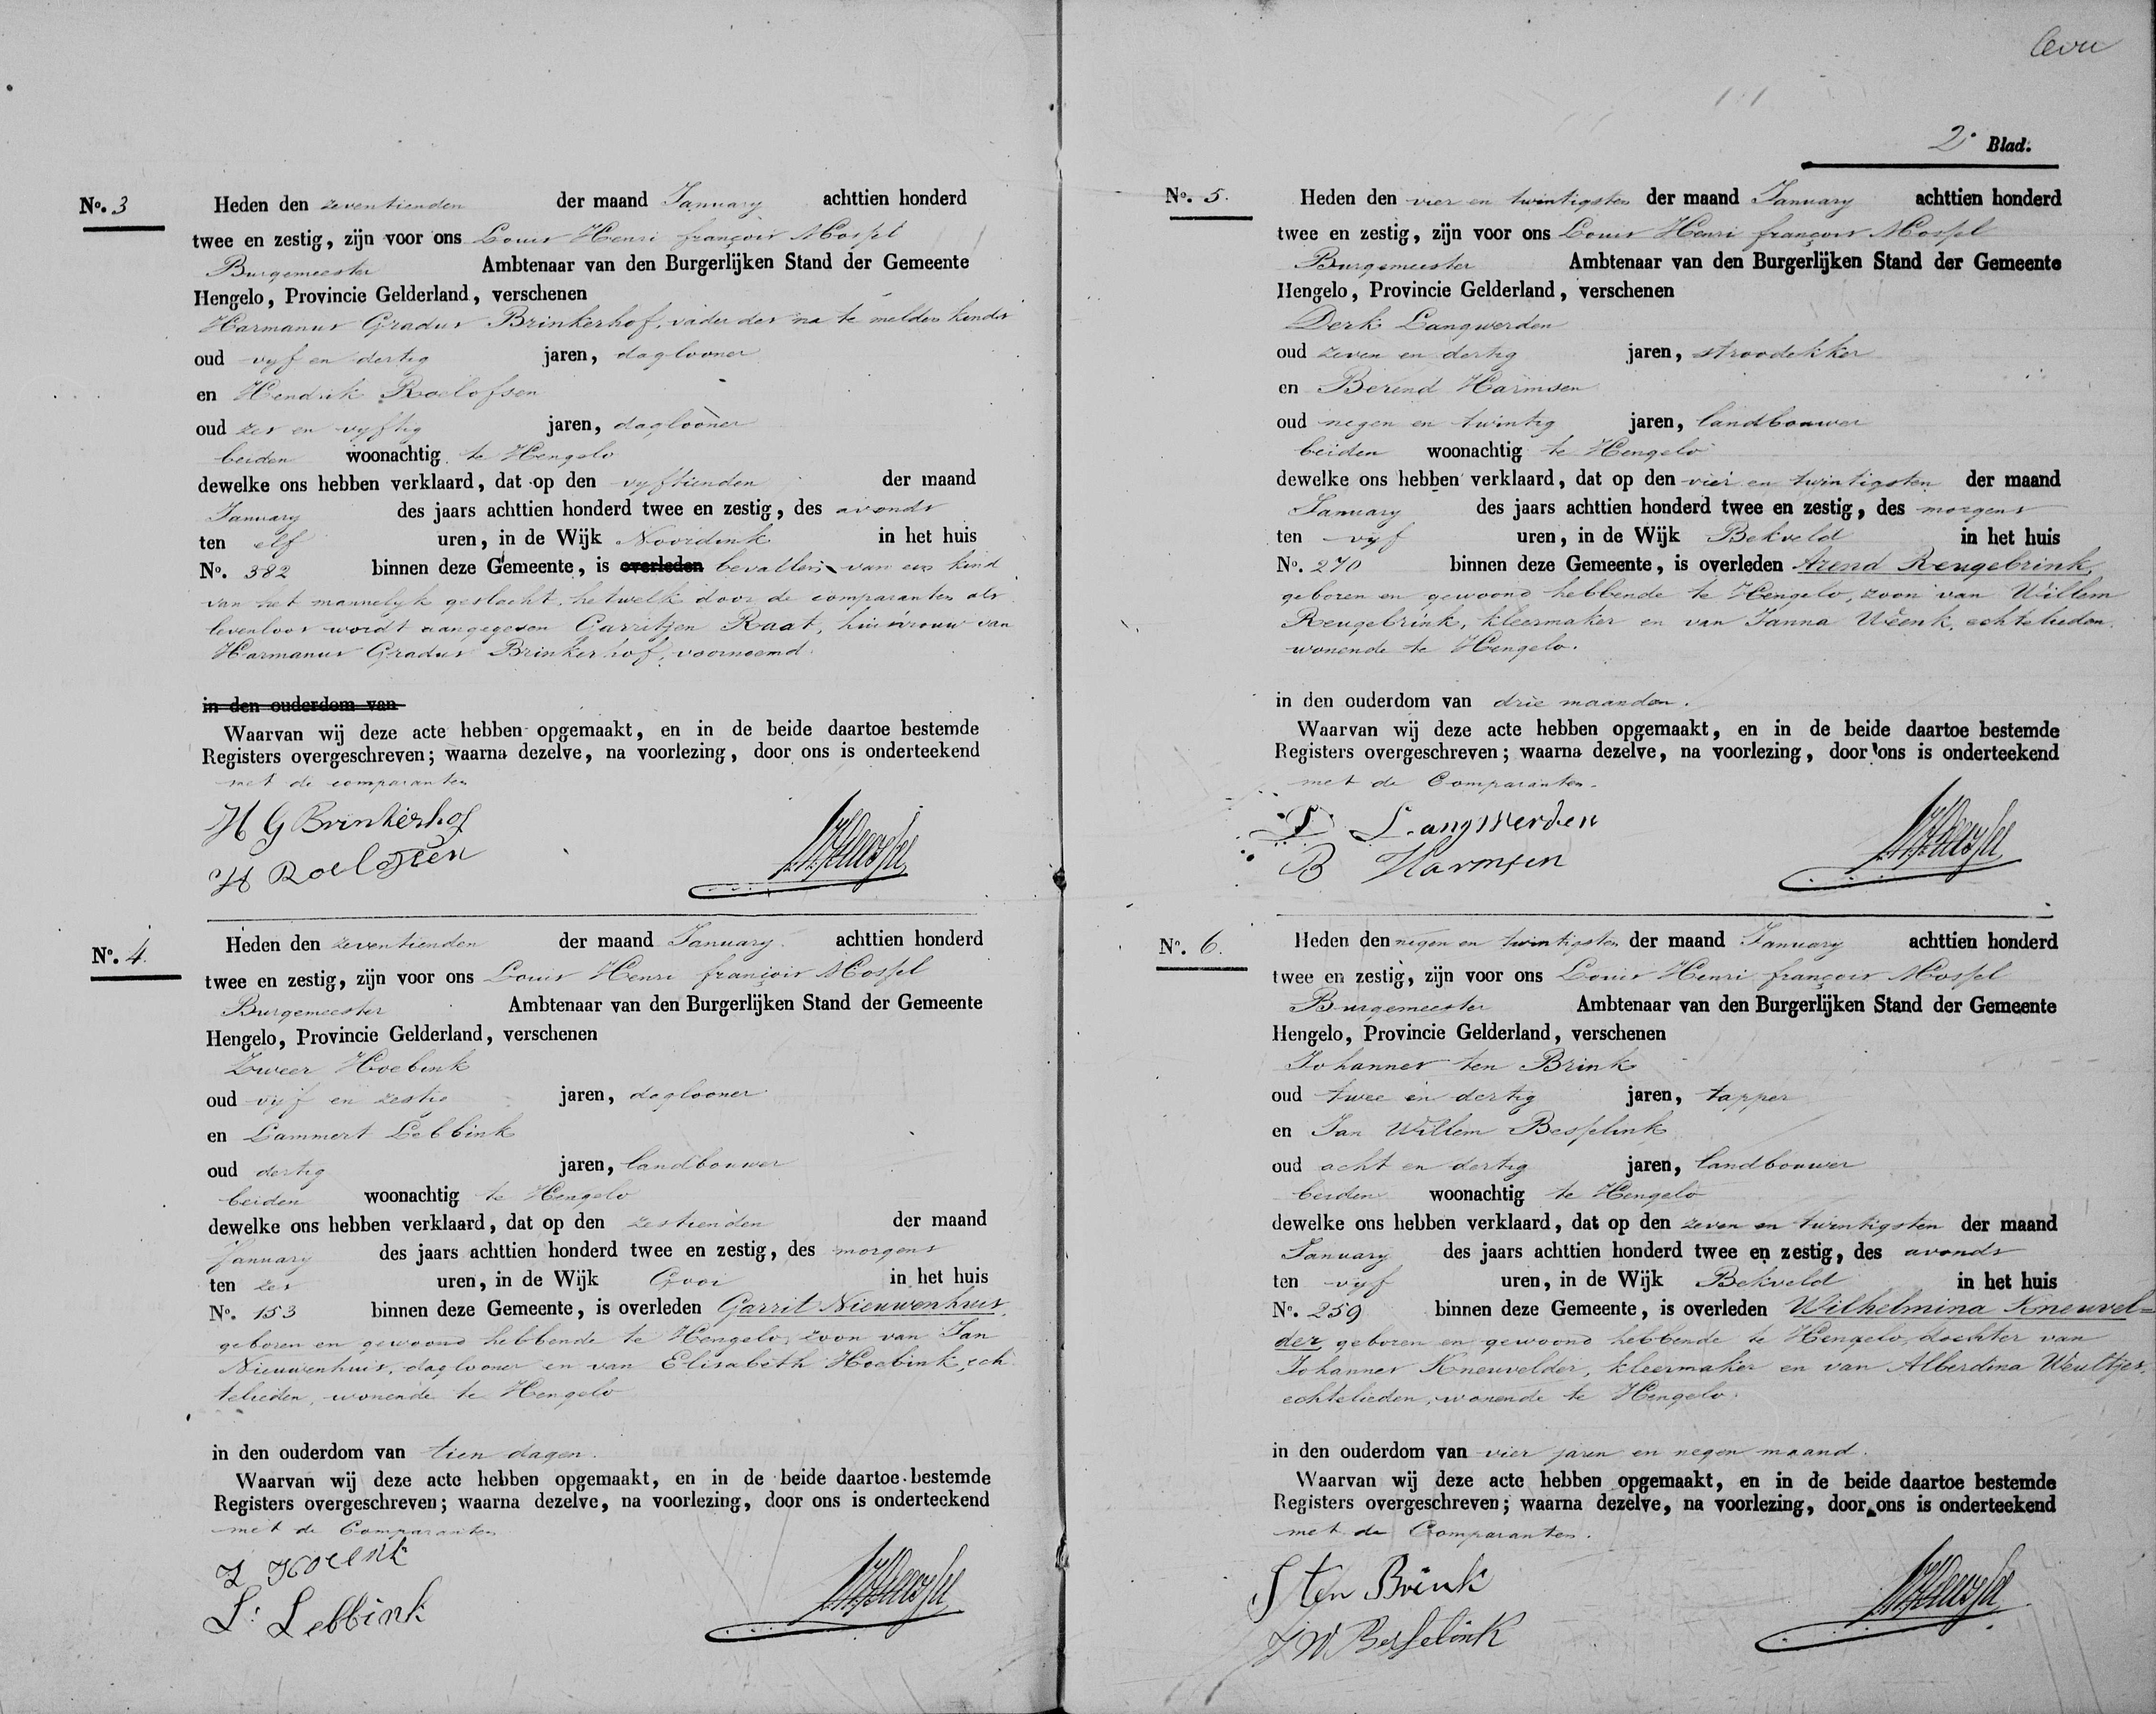 No. 3
Heden den zeventienden der maand January achttien honderd
twee en zestig, zijn voor ons Louis Henri françois Mossel
Burgemeester Ambtenaar van den Burgerlijken Stand der Gemeente
Hengelo, Provincie Gelderland, verschenen
Harmanus Gradus Brinkerhof, vader des na te melden kinds
oud vyf en dertig jaren, daglooner
en Hendrik Roelofsen
oud zes en vyftig jaren, daglooner
beiden woonachtig te Hengelo
dewelke ons hebben verklaard, dat op den vyftienden der maand
January des jaars achttien honderd twee en zestig, des avonds
ten elf uren, in de Wijk Noordink in het huis
No. 382 binnen deze Gemeente, is overleden bevallen van een kind
van het mannelyk geslacht, hetwelk door de comparanten als
levenloos wordt aangegeven Garritjen Raat, huisvrouw van
Harmanus Gradus Brinkerhof, voornoemd.
in den ouderdom van
Waarvan wij deze acte hebben opgemaakt, en in de beide daartoe bestemde
Registers overgeschreven; waarna dezelve, na voorlezing, door ons is onderteekend
met de comparanten
H G Brinkerhof
H Roelofsen
No. 4.
Heden den zeventienden der maand January achttien honderd
twee en zestig, zijn voor ons Louis Henri françois Mossel
Burgemeester Ambtenaar van den Burgerlijken Stand der Gemeente
Hengelo, Provincie Gelderland, verschenen
Zweer Hoebink
oud vijf en zestig jaren, daglooner
en Lammert Lebbink
oud dertig jaren, landbouwer
beiden woonachtig te Hengelo
dewelke ons hebben verklaard, dat op den zestienden der maand
January des jaars achttien honderd twee en zestig, des morgens
ten zes uren, in de Wijk Gooi in het huis
No. 153 binnen deze Gemeente, is overleden Garrit Nieuwenhuis,
geboren en gewoond hebbende te Hengelo, zoon van Jan
Nieuwenhuis, daglooner en van Elisabeth Hoebink, ech
telieden, wonende te Hengelo
in den ouderdom van tien dagen.
Waarvan wij deze acte hebben opgemaakt, en in de beide daartoe bestemde
Registers overgeschreven; waarna dezelve, na voorlezing, door ons is onderteekend
met de Comparanten
L: Lebbink
2e Blad.
No. 5.
Heden den vier en twintigsten der maand January achttien honderd
twee en zestig, zijn voor ons Louis Henri françois Mossel
Burgemeester Ambtenaar van den Burgerlijken Stand der Gemeente
Hengelo, Provincie Gelderland, verschenen
Derk Langwerden
oud zeven en dertig jaren, stroodekker
en Berend Harmsen
oud negen en twintig jaren, landbouwer
beiden woonachtig te Hengelo
dewelke ons hebben verklaard, dat op den vier en twintigsten der maand
January des jaars achttien honderd twee en zestig, des morgens
ten vijf uren, in de Wijk Bekveld in het huis
No. 270 binnen deze Gemeente, is overleden Arend Reugebrink,
geboren en gewoond hebbende te Hengelo, zoon van Willem
Reugebrink, kleermaker en van Janna Weenk, echtelieden,
wonende te Hengelo.
in den ouderdom van drie maanden.
Waarvan wij deze acte hebben opgemaakt, en in de beide daartoe bestemde
Registers overgeschreven; waarna dezelve, na voorlezing, door ons is onderteekend
met de Comparanten.
D Langwerden
B Harmsen
No. 6.
Heden den negen en twintigsten der maand January achttien honderd
twee en zestig, zijn voor ons Louis Henri françois Mossel
Burgemeester Ambtenaar van den Burgerlijken Stand der Gemeente
Hengelo, Provincie Gelderland, verschenen
Johannes ten Brink
oud twee en dertig jaren, tapper
en Jan Willem Besselink
oud acht en dertig jaren, landbouwer
beiden woonachtig te Hengelo
dewelke ons hebben verklaard, dat op den zeven en twintigsten der maand
January des jaars achttien honderd twee en zestig, des avonds
ten vyf uren, in de Wijk Bekveld in het huis
No. 259 binnen deze Gemeente, is overleden Wilhelmina Kneuvel=
der, geboren en gewoond hebbende te Hengelo, dochter van
Johannes Kneuvelder, kleermaker en van Alberdina Weultjes,
echtelieden, wonende te Hengelo.
in den ouderdom van vier jaren en negen maand.
Waarvan wij deze acte hebben opgemaakt, en in de beide daartoe bestemde
Registers overgeschreven; waarna dezelve, na voorlezing, door ons is onderteekend
met de Comparanten.
J ten Brink
J W Besselink